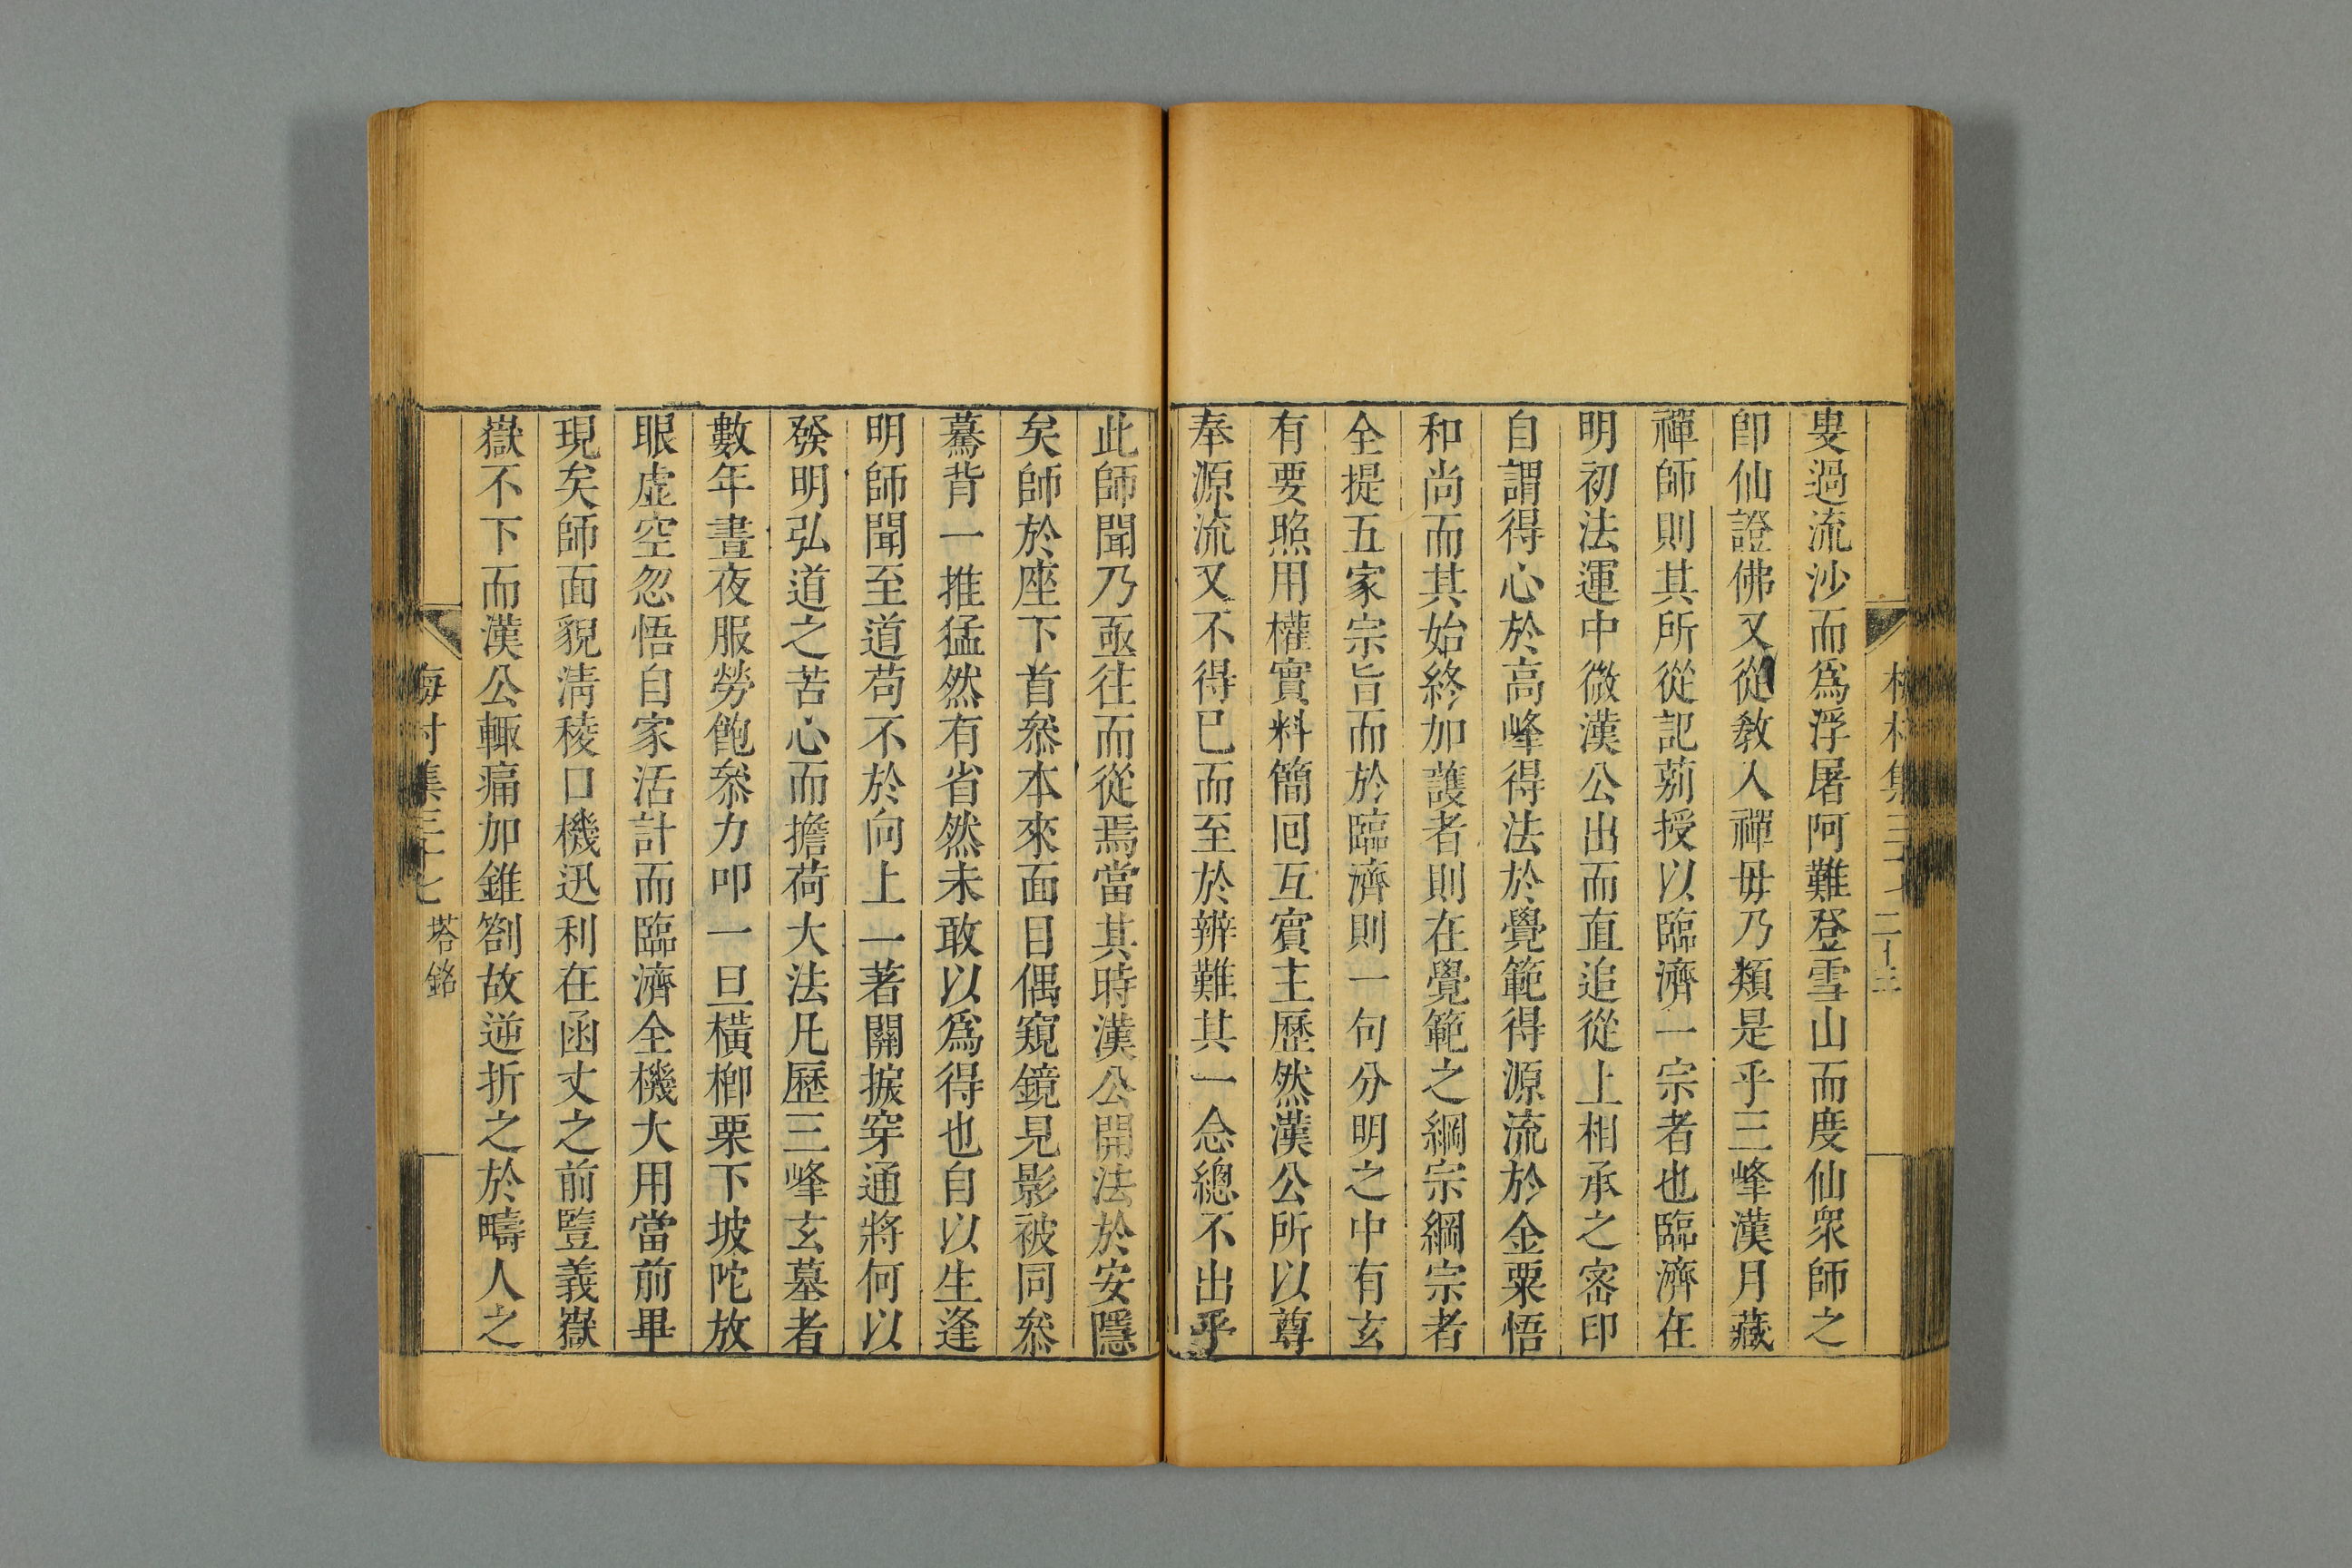 叟過流沙而爲浮屠阿難登雪山而度仙衆師之
卽仙證佛又從敎入禪毋乃類是乎三峰漢月藏
禪師則其所從記莂授以臨濟一宗者也臨濟在
明初法運中微漢公出而直追從上相承之密印
自謂得心於高峰得法於覺範得源流於金粟悟
和尚而其始終加護者則在覺範之綱宗綱宗者
全提五家宗旨而於臨濟則一句分明之中有玄
有要照用權實料簡回互賓主歷然漢公所以尊
奉源流又不得已而至於辨難其一念總不出乎
此師聞乃亟往而從焉當其時漢公開法於安隱
矣師於座下首叅本來面目偶窺鏡見影被同叅
驀背一推猛然有省然未敢以爲得也自以生逢
明師聞至道苟不於向上一著關捩穿通將何以
發明弘道之苦心而擔荷大法凡歷三峰玄墓者
數年晝夜服勞飽叅力叩一旦橫榔栗下坡陀放
眼虛空忽悟自家活計而臨濟全機大用當前畢
現矣師面貌淸稜口機迅利在函丈之前豎義嶽
嶽不下而漢公輙痛加錐劄故逆折之於疇人之
梅村集三十七 塔銘